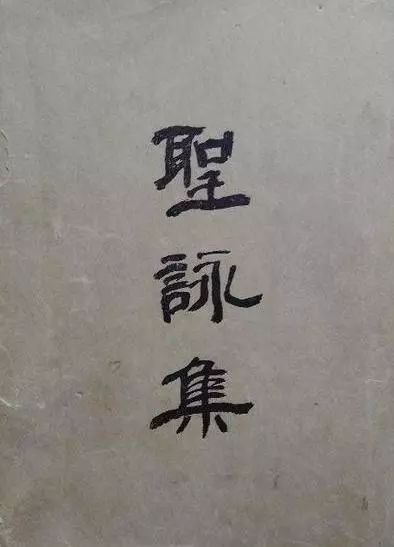 聖詠集